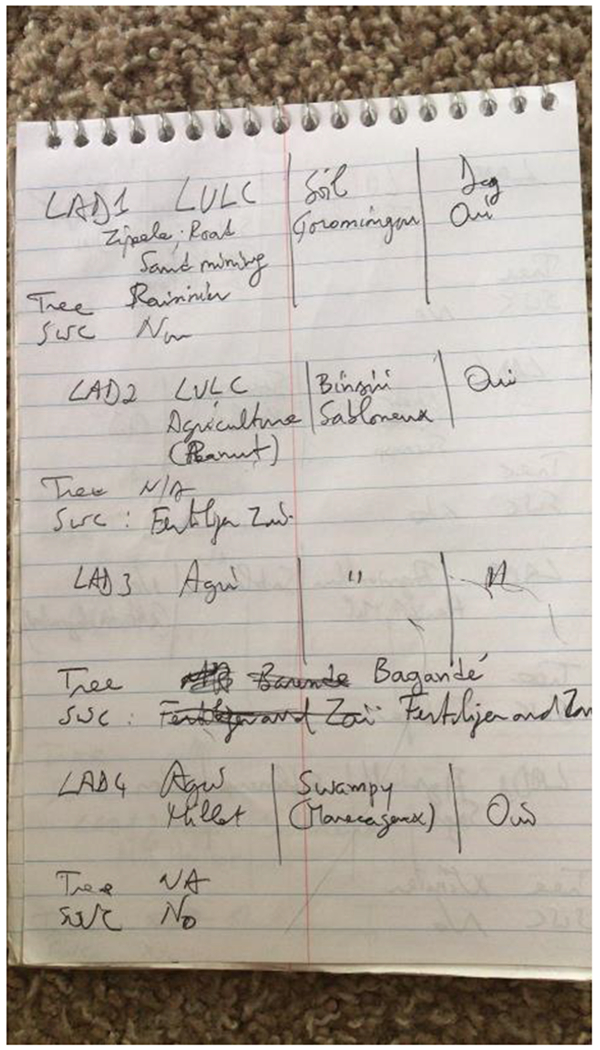 LAD1 LULC Soil Deg
Zipeele, Road Goromingou Oui
Sand mining
Tree Raisinier
SWC Non
LAD2 LULC Binsiri Oui
Agriculture Sabloneux
(Peanut)
Tree N/A
SWC : Fertilizer Zaï.
LAD3 Agri "
Tree Barende Bagandé
SWC : Fertilizer and Zaï Fertilizer and Zaï
LAD4 Agri Swampy
Millet (Marecageux) Oui
Tree NA
SWC No